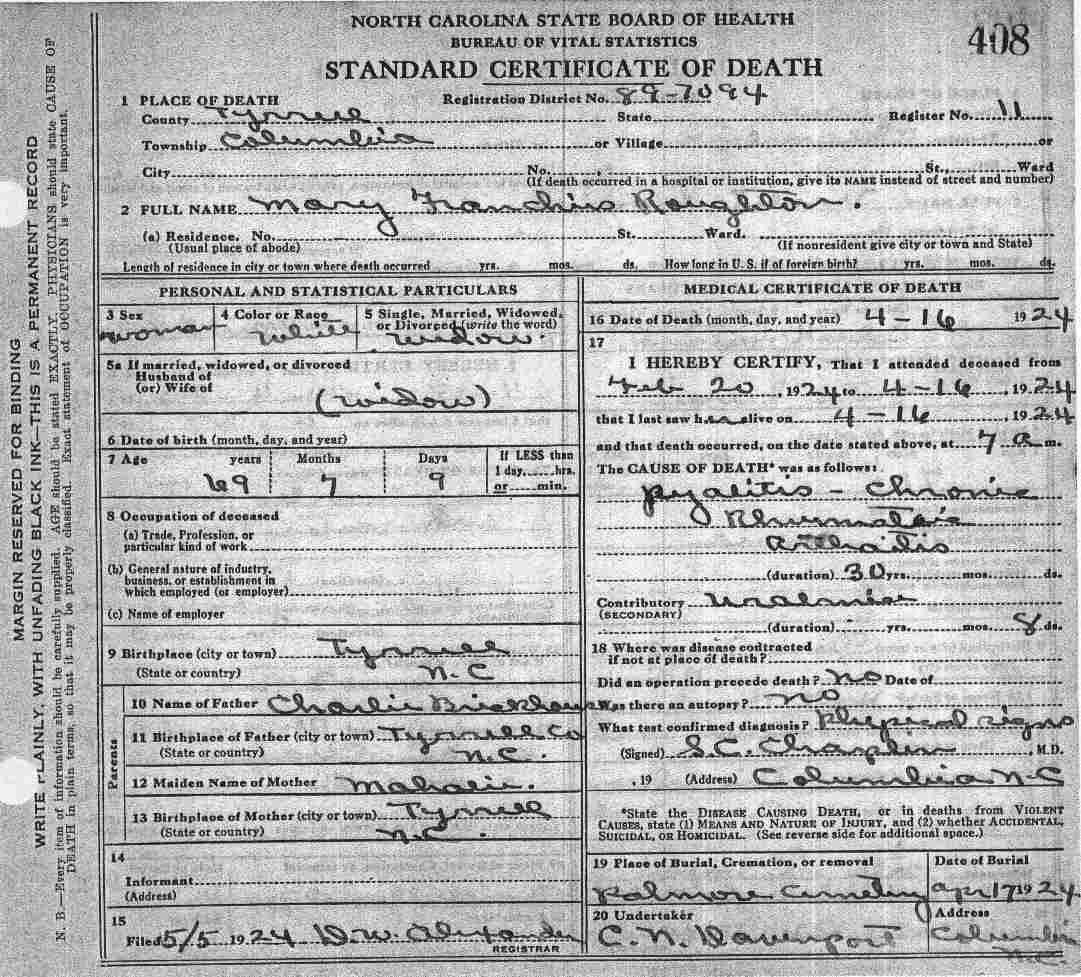 NORTH CAROLINA STATE BOARD OF HEALTH
BUREAU OF VITAL STATISTICS
STANDARD CERTIFICATE OF DEATH
408
1 PLACE OF DEATH Registration District No. 89-7094
County Tyrrell State Register No. 11
Township Columbia or Village or
City No. , St., Ward
(If death occurred in a hospital or institution, give its NAME instead of street and number)
2 FULL NAME Mary Roughton.
(a) Residence. No. St. Ward.
(Usual place of abode) (If nonresident give city or town and State)
Length of residence in city or town where death occurred yrs. mos. ds. How long in U. S. if of foreign birth? yrs. mos. ds.
PERSONAL AND STATISTICAL PARTICULARS
3 Sex 4 Color or Race 5 Single, Married, Widowed, or Divorced (write the word)
woman white widow.
5a If married, widowed, or divorced
Husband of
(or) Wife of
(widow)
6 Date of birth (month, day, and year)
7 Age years Months Days If LESS than
1 day, hrs.
or min.
69 7 9
8 Occupation of deceased
(a) Trade, Profession, or
particular kind of work
(b) General nature of industry,
business, or establishment in
which employed (or employer)
(c) Name of employer
9 Birthplace (city or town) Tyrrell
(State or country) N.C
Parents
10 Name of Father Charlie Brickhouse
11 Birthplace of Father (city or town) Tyrrell Co
(State or country) N.C.
12 Maiden Name of Mother
13 Birthplace of Mother (city or town) Tyrrell
(State or country) N.C.
14
Informant
(Address)
15
Filed 5/5 1924 D.W. Alexander
REGISTRAR
MEDICAL CERTIFICATE OF DEATH
16 Date of Death (month, day, and year) 4-16 1924
17
I HEREBY CERTIFY, That I attended deceased from
Feb 20, 1924 to 4-16, 1924
that I last saw her alive on 4-16, 1924
and that death occurred, on the date stated above, at 7 a m.
The CAUSE OF DEATH* was as follows:
pyalitis - Chronic
Arthritis
(duration) 30 yrs. mos. ds.
Contributory
(SECONDARY)
(duration) yrs. mos. 8 ds.
18 Where was disease contracted
if not at place of death?
Did an operation precede death? no Date of
Was there an autopsy? no
What test confirmed diagnosis? Physical signs
(Signed) S.C. Chaplin, M.D.
, 19 (Address) Columbia N-C
*State the DISEASE CAUSING DEATH, or in deaths from VIOLENT
CAUSES, state (1) MEANS AND NATURE OF INJURY, and (2) whether ACCIDENTAL,
SUICIDAL, or HOMICIDAL. (See reverse side for additional space.)
19 Place of Burial, Cremation, or removal Date of Burial
Cemetery Apr 17 1924
20 Undertaker Address
C. N. Davenport Columbia
N.C.
MARGIN RESERVED FOR BINDING
WRITE PLAINLY, WITH UNFADING BLACK INK—THIS IS A PERMANENT RECORD
N. B.—Every item of information should be carefully supplied. AGE should be stated EXACTLY. PHYSICIANS should state CAUSE OF
DEATH in plain terms, so that it may be properly classified. Exact statement of OCCUPATION is very important.